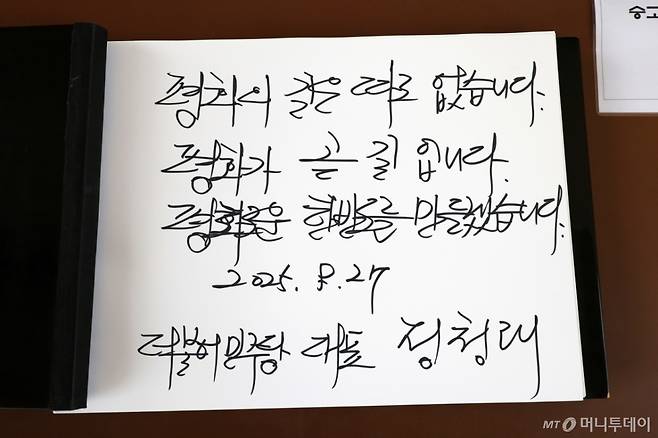 평화의 길은 따로 없습니다.
평화가 곧 길입니다.
평화로운 한반도를 만들겠습니다.
2025. 8. 27
더불어민주당 대표 정청래
숭고
MT 머니투데이